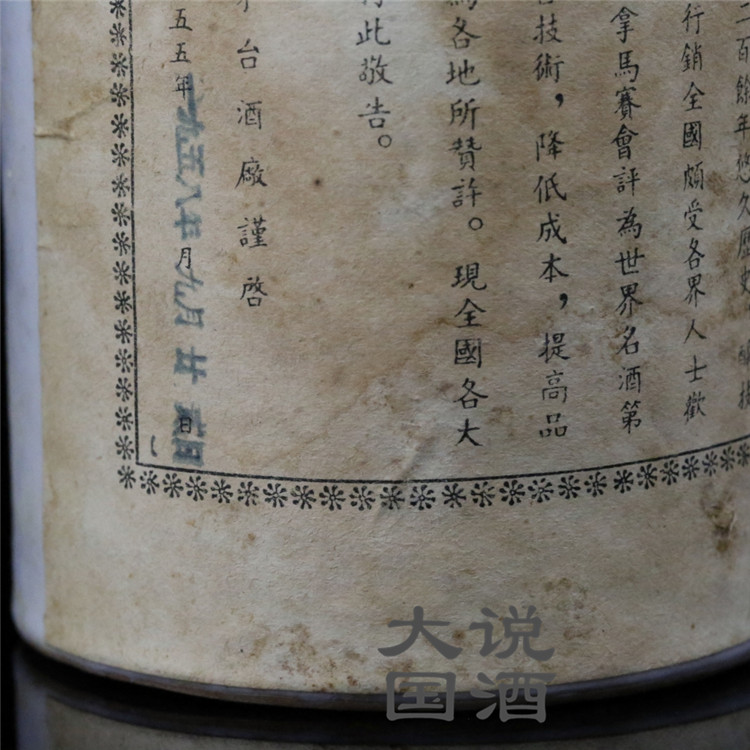 二百餘年悠久歷史
行銷全國頗受各界人士歡
拿馬賽會評為世界名酒第
技術，降低成本，提高品
各地所贊許。現全國各大
此敬告。
台酒廠謹啓
五五年 月 日
一九五八年九月廿 日
大说
国酒